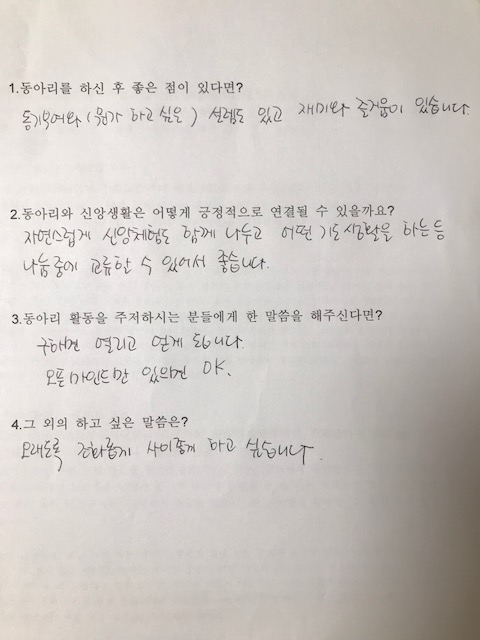 1.동아리를 하신 후 좋은 점이 있다면?
동기부여와 (뭔가 하고 싶은) 설렘도 있고 재미와 즐거움이 있습니다.
2.동아리와 신앙생활은 어떻게 긍정적으로 연결될 수 있을까요?
자연스럽게 신앙체험도 함께 나누고 어떤 기도 생활을 하는 등
나눔 중에 교류할 수 있어서 좋습니다.
3.동아리 활동을 주저하시는 분들에게 한 말씀을 해주신다면?
구하면 열리고 얻게 됩니다.
오픈 마인드만 있으면 OK.
4.그 외의 하고 싶은 말씀은?
오래도록 사이좋게 하고 싶습니다.